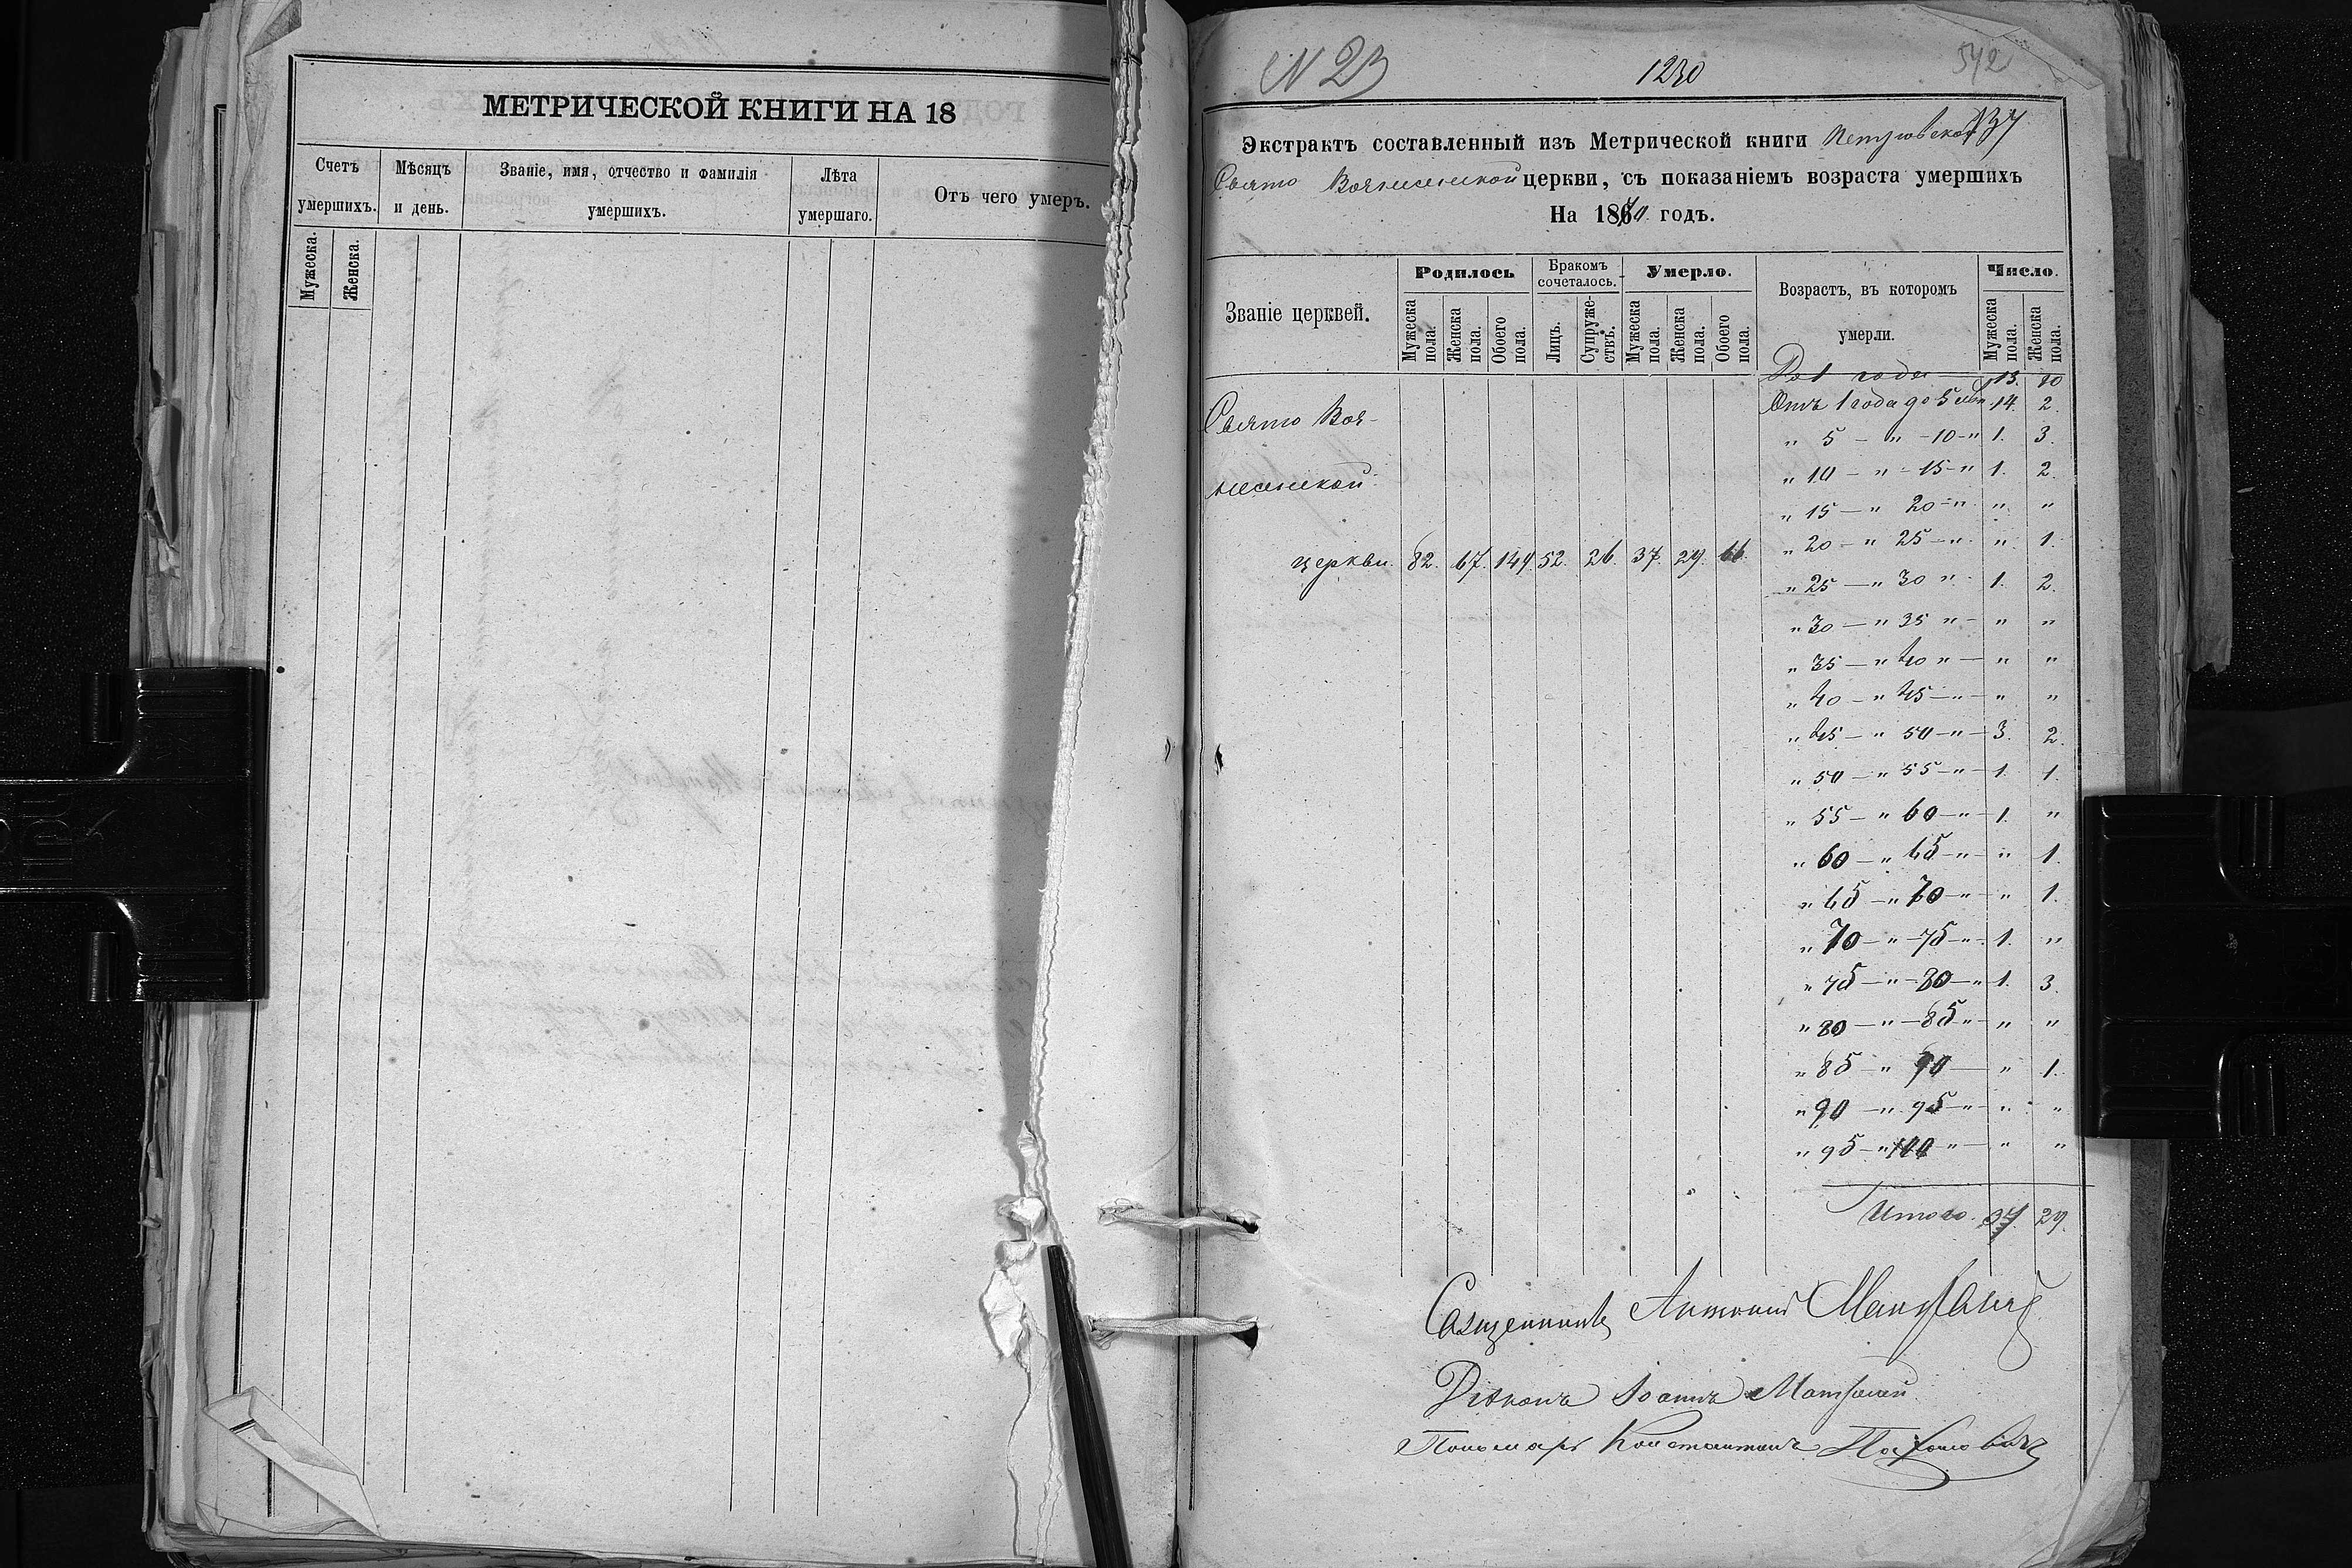 МЕТРИЧЕСКОЙ КНИГИ НА 18
Счетъ умершихъ.
Мѣсяцъ и день.
Званіе, имя, отчество и фамилія умершихъ.
Лѣта умершаго.
Отъ чего умеръ.
Мужеска.
Женска.
N 23
1230
542
Экстрактъ составленный изъ Метрической книги Петровской 137
Свято Вознесенской церкви, съ показаніемъ возраста умершихъ
На 1870 годъ.
Званіе церквей.
Родилось
Бракомъ сочеталось.
Умерло.
Возрастъ, въ которомъ умерли.
Число.
Мужеска пола.
Женска пола.
Обоего пола.
Лицъ.
Супружествъ.
Мужеска пола.
Женска пола.
Обоего пола.
Мужеска пола.
Женска пола.
До 1 года — 13. 10
Свято Воз-
Отъ 1 года до 5 лѣт 14. 2.
" 5 — " — 10 — " 1. 3.
несенской
" 10 — " — 15 — " 1. 2.
" 15 — " 20 — " " "
" 20 — " 25 — " " 1.
церкви. 82. 67. 149. 52. 26. 37. 29. 66.
" 25 — " 30 " - 1. 2.
" 30 — " 35 " — " "
" 35 — " 40 " — " "
" 40 — " 45 — " — " "
" 45 — " 50 — " — 3. 2.
" 50 — " 55 — " — 1. 1.
" 55 — " 60 — " — 1. "
" 60 — " 65 — " — " 1.
" 65 — " 70 — " — " 1.
" 70 — " — 75 — " — 1. "
" 75 — " — 80 — " 1. 3.
" 80 — " — 85 " — " "
" 85 — " 90 — " 1.
" 90 — " 95 — " — " "
" 95 — " 100 " — " "
Итого. 37 29.
Священникъ Антоній
Діаконъ Іоаннъ
Пономарь Константинъ